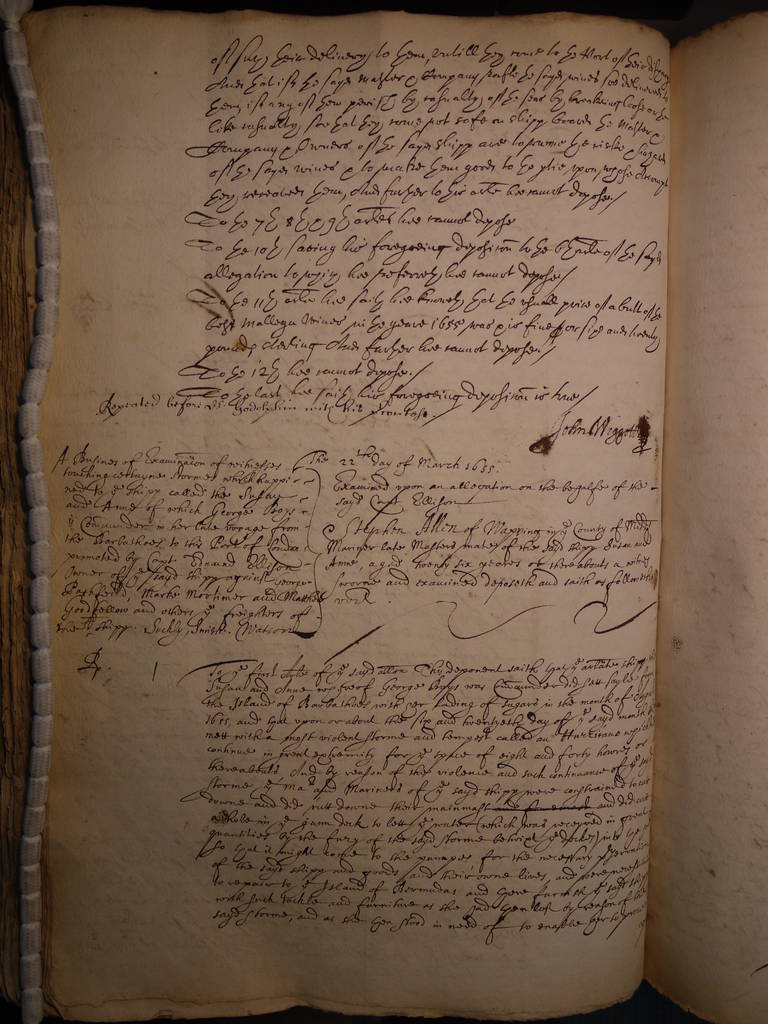 of such their delivery to them, untill they come to the Port of their
And that if the sayd Master & Company the sayd wines soe delivered to
them, if any of them perish by casualty of the seas by breaking loose or the
like casualty, soe that they come not safe on shipp board the Master &
Company & Owners of the sayd shipp are to runne the risko & hazard
of the sayd wines & to make them good to the
they received them, And further to his arle hee cannot depose./
To the 7th 8th & 9th arles hee cannot depose
To the 10th saving his foregoeing deposition to the 6th arle of the sayd
allegation to which hee referreth hee cannot depose/
To the 11th arle hee saith hee knoweth that the usuall price of a butt of the
best Mallega wines in the yeare 1655 was five or sixe and twenty
pounds sterling And further hee cannot depose./
To the 12th hee cannot depose./
To the last hee saith his foregoeing deposition is true/
Repeated before dr Godolphin with his
John Wiggott
A Busines of Examination of witnesses
touching certayne stormes which happi-
ned to ye shipp called the Susan
and Anne of which George Bops
Commander in her late voyage from
the Barbathoes to this Port of London
promoted by Capt. Edward Ellison
Owner of ye sayd shipp against George
Marke Mortimer and Mathew
Goodfellow and others ye freighters of
the sd shipp. Suckly, Smith. Watson
The 22th day of March 1655.
Examined upon an allegation on the behalfe of the
sayd Capt Ellison
Stephen Allen of Wapping in ye County of Middx
Mariner late Masters mate of the sayd shipp Susan and
Anne, aged twenty six yeares or thereabouts a witnes
sworne and examined deposeth and saith as followeth
vizt.
Rp. 1
To ye first Arle of ye sayd allon Thys deponent saith that ye arlate shipp the
Susan and Anne whereof George Bopps was Commander did sett sayle from
the Island of Barbathoes with her lading of sugars in the month of August
1655, and that upon or about the six and twentyeth day of ye sayd month shee
mett with a most violent storme and tempest called an Hurricano which
continued in great extremity for ye space of eight and forty howres or
thereabouts. And by reason of the violence and such continuance of ye sayd
storme ye Mar and Mariners of ye sayd shipp were constrained to cut
downe and did cutt downe their mainmast and did cut
a hole in ye gunn deck to lett ye water (which was received in great
quantities by the fury of the sayd storme betwixt ye deckes) into
so that it might come to the pumpes for the necessary preservation
of the sayd shipp and goods and their owne lives, and were necessitated
to repaire to ye Island of Bermudas and there furnish ye sayd shipp
with such tackle and furniture as she had then lost by reason of the
sayd storme, and as she then stood in need of to enable her to